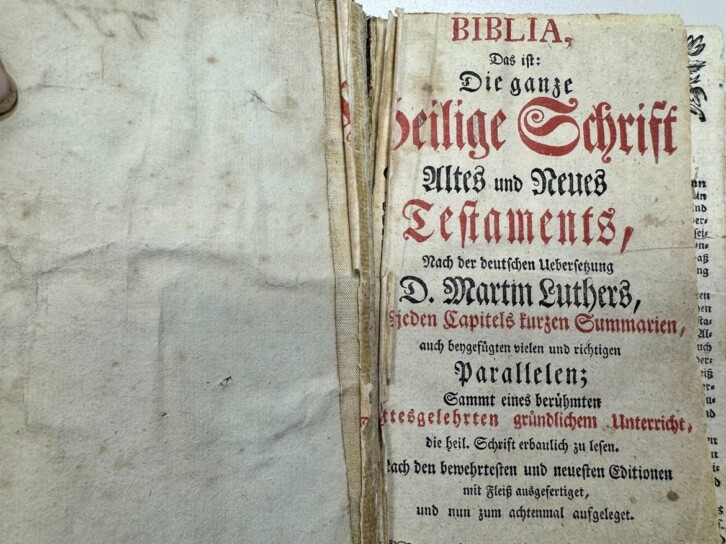 BIBLIA,
Das ist:
Die ganze
Heilige Schrift
Altes und Neues
Testaments,
Nach der deutschen Uebersetzung
D. Martin Luthers,
jeden Capitels kurzen Summarien,
auch beygefügten vielen und richtigen
Parallelen;
Sammt eines berühmten
ttesgelehrten gründlichem Unterricht,
die heil. Schrift erbaulich zu lesen.
Nach den bewehrtesten und neuesten Editionen
mit Fleiß ausgefertiget,
und nun zum achtenmal aufgeleget.